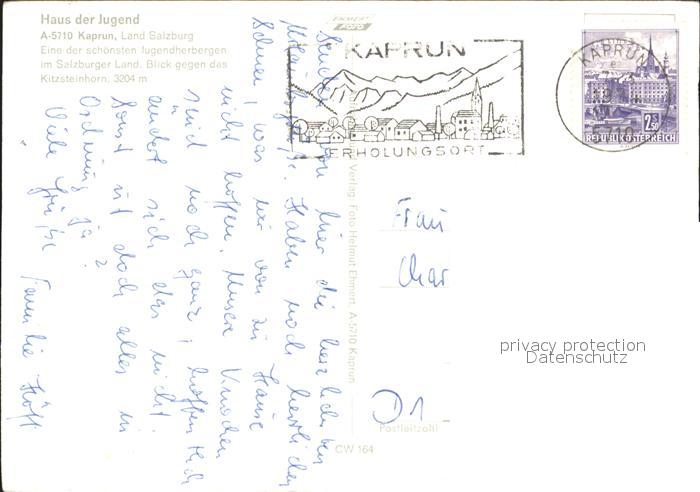 Haus der Jugend
A-5710 Kaprun, Land Salzburg
Eine der schönsten Jugendherbergen
im Salzburger Land. Blick gegen das
Kitzsteinhorn, 3204 m
EHMERT
FOTO
KAPRUN
ERHOLUNGSORT
KAPRUN
5710
2.50
REPUBLIK ÖSTERREICH
Sende von hier die herzlichsten
Urlaubsgrüße. Haben noch herrlichen
Schnee, was wir von zu Hause
nicht hoffen. Unsere Knochen
sind noch ganz, hoffentlich
ändert sich das nicht.
Sonst ist doch alles in
Ordnung ja?
Viele Grüße Familie
Verlag: Foto Helmut Ehmert, A-5710 Kaprun
Frau
Char
privacy protection
Datenschutz
D1
Postleitzahl
CW 164